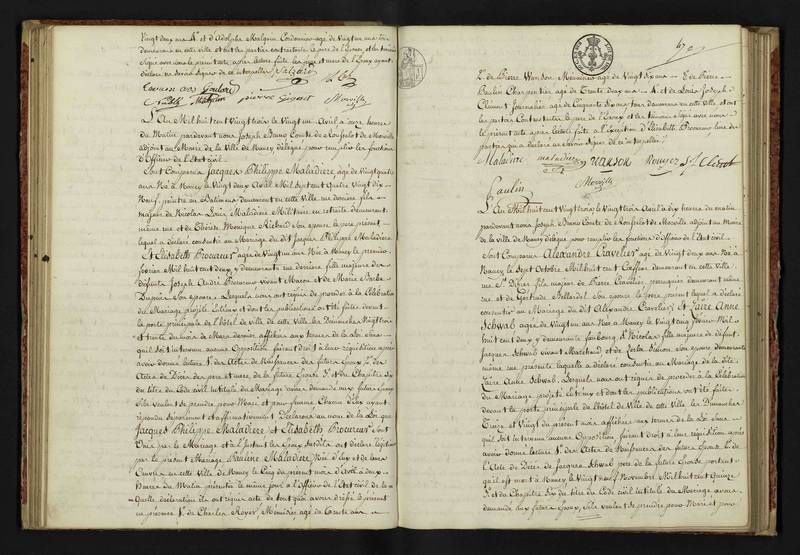 Vingt deux ans 4°. et d'Adolphe Malgrin Cordonnier agé de Vingt un ans tous
demeurans en cette ville et ont les parties contractantes le pere de l'Epoux, et les témoins
signé avec nous le présent acte après lecture faite les pere et mere de l'Epoux ayant
déclaré ne savoir signer de ce interpellés
Morville
L'An Mil huit cent Vingt trois le Vingt un Avril à onze heures
du Matin pardevant nous Joseph Bruno Comte de Rouselot de Morville
adjoint au Maire de la Ville de Nancy délégué pour remplir les fonctions
d'Officier de l'Etat civil.
Sont Comparus Jacques Philippe Maladiere, agé de Vingt quatre
ans Né à Nancy le Vingt deux Avril Mil Sept cent Quatre Vingt Dix
Neuf, peintre en Batimens demeurant en cette ville rue fils
majeur de Nicolas Louis Maladiere Militaire en retraite demeurant
même rue et de Thérèse Monique Richard son epouse le pere présent
lequel a déclaré consentir au Mariage du dit Jacques Philippe Maladiere
Et Elisabeth Brocureur agée de Vingt un ans Née à Nancy le premier
fevrier Mil huit cent deux, y demeurante rue derriere fille majeure de
défunts Joseph André Brocureur vivant Macon et de Marie Barbe
Dupuis son epouse Lesquels nous ont requis de procéder à la Célébration
du Mariage projeté entr'eux et dont les publications ont été faites devant
la porte principale de l'hôtel de ville de cette Ville les Dimanches Vingt trois
et trente du mois de Mars dernier affichées aux termes de la Loi sans
qu'il soit intervenu aucune Opposition faisant droit à leur réquisition après
avoir donné lecture 1°. des Actes de Naissances des futurs Epoux 2°. des
Actes de Décès des pere et mere de la future Epouse 3°. et du Chapitre six
du titre du Code civil intitulé du Mariage avons demandé aux futurs Epoux
s'ils veulent se prendre pour Mari et pour femme Chacun d'eux ayant
répondu séparément et affirmativement Déclarons au nom de la Loi que
Jacques Philippe Maladiere et Elisabeth Brocureur sont
Unis par le Mariage et à l'instant les Epoux susdits ont déclaré légitimer
par le présent Mariage Pauline Maladiere Née d'eux et de leurs
Oeuvres en cette Ville de Nancy le Cinq du présent mois d'Avril à deux
heures du Matin présentée le même jour à l'Officier de l'Etat civil de la
Quelle déclaration ils ont requis acte de tout quoi avons dréssé le présent
en présence 1°. de Charles Royer, Menuisier agé de trente ans
2°. de Pierre Warsok Menuisier agé de Vingt dix ans 3°. de Pierre
Paulin Charpentier agé de Trente deux ans 4°. et de Louis Joseph
Clément Journalier agé de Cinquante six ans tous demeurans en cette Ville, et ont
les parties Contractantes, le pere de l'Epoux et les témoins signé avec nous
le présent acte après lecture faite à l'exception d'Elisabeth Brocureur l'une des
parties qui a déclaré ne savoir signer de ce interpellée
Maladiere maladiere Warsok
Paulin Morville
L'An Mil huit cent Vingt trois, le Vingt trois Avril à dix heures du matin
pardevant nous Joseph Bruno Comte de Rouselot de Morville adjoint au Maire
de la ville de Nancy délégué pour remplir les fonctions d'Officier de l'Etat civil
Sont Comparus Alexandre Cravelier agé de Vingt deux ans Né à
Nancy le Sept Octobre Mil huit cent Coeffeur demeurant en cette ville
rue St. Dizier fils majeur de Pierre Cravelier, perruquier demeurant même
rue et de Gertrude son epouse le pere présent lequel a déclaré
consentir au Mariage du dit Alexandre Cravelier Et Anne
Schwab agée de Vingt un ans Née à Nancy le Vingt cinq février Mil
huit cent deux, y demeurante faubourg St. Nicolas fille majeure de défunt
Jacques Schwab vivant Marchand et de son épouse demeurante
même rue présente laquelle a déclaré consentir au Mariage de la dite
Anne Schwab. Lesquels nous ont requis de procéder à la Célébration
du Mariage projeté entr'eux et dont les publications ont été faites
devant la porte principale de l'hôtel de Ville de cette Ville les Dimanches
Treize et Vingt du présent mois affichées aux termes de la Loi sans
qu'il soit intervenu aucune Opposition faisant droit à leur réquisition après
avoir donné lecture 1°. des Actes de Naissances des futurs Epoux 2°. de
l'Acte de Décès de Jacques Schwab pere de la future Epouse portant
qu'il est mort à Nancy le Vingt Novembre Mil huit cent Quinze
3°. et du Chapitre Six du titre du Code civil intitulé du Mariage avons
demandé aux futurs Epoux, s'ils veulent se prendre pour Mari et pour